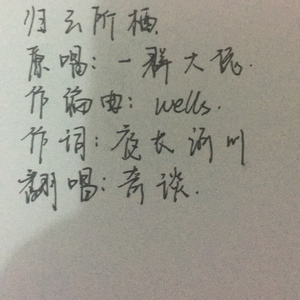 归云所栖
原唱：一群大佬.
作编曲：wells.
作词：夜长浙川
翻唱：奇谈.